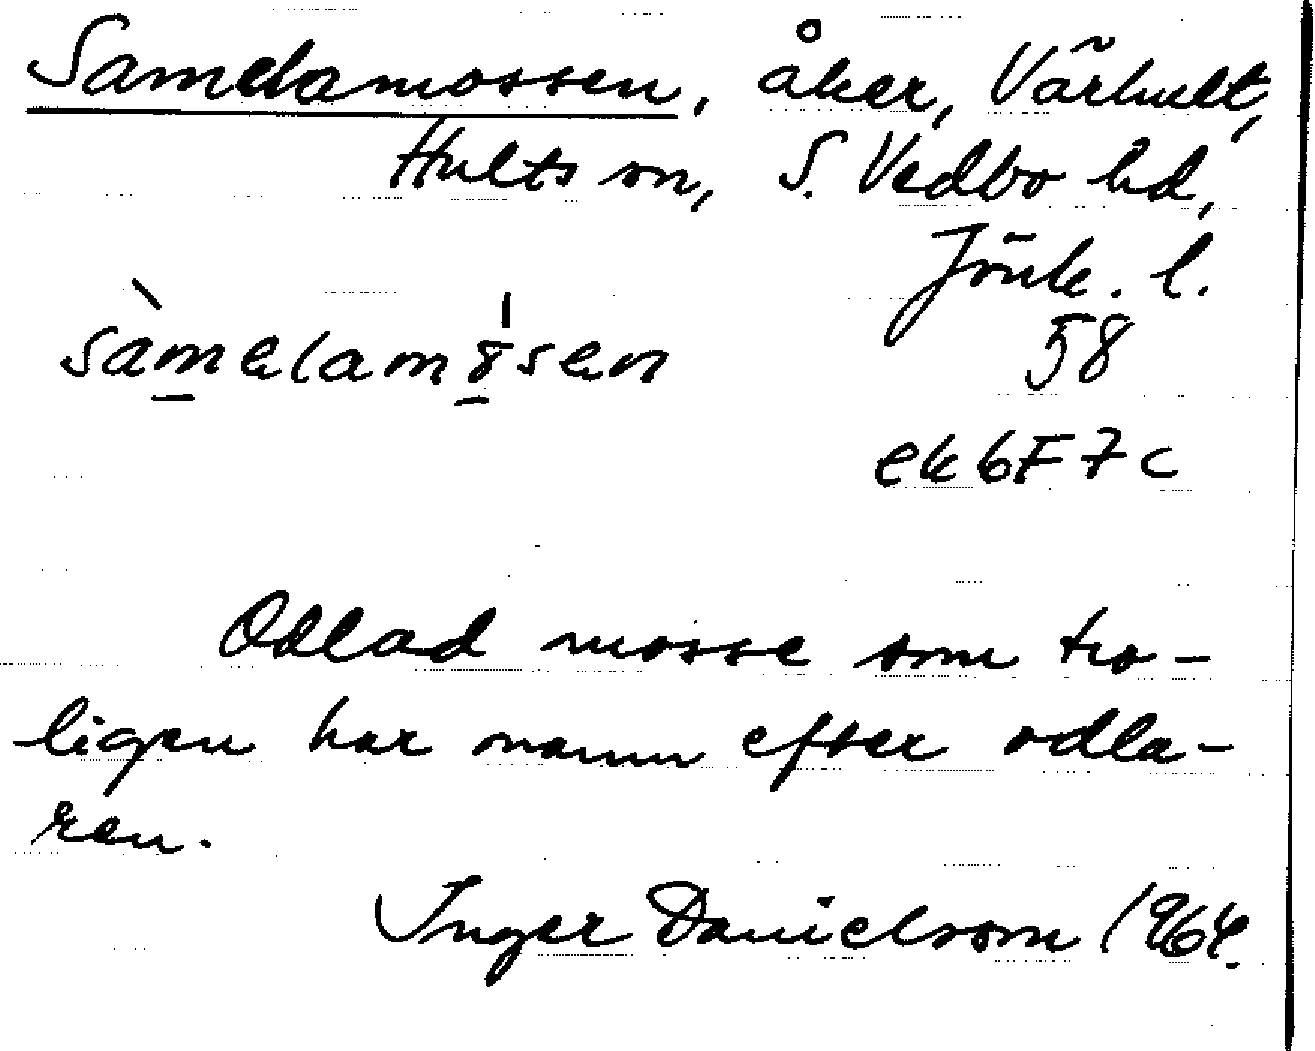 Samelamossen, åker, Vårhult,
Hults sn, S. Vedbo hd,
Jönk. l.
sàmelamɤ́sen
58
ek 6F7c
Odlad mosse som tro-
ligen har namn efter odla-
ren.
Inger Danielsson 1964.